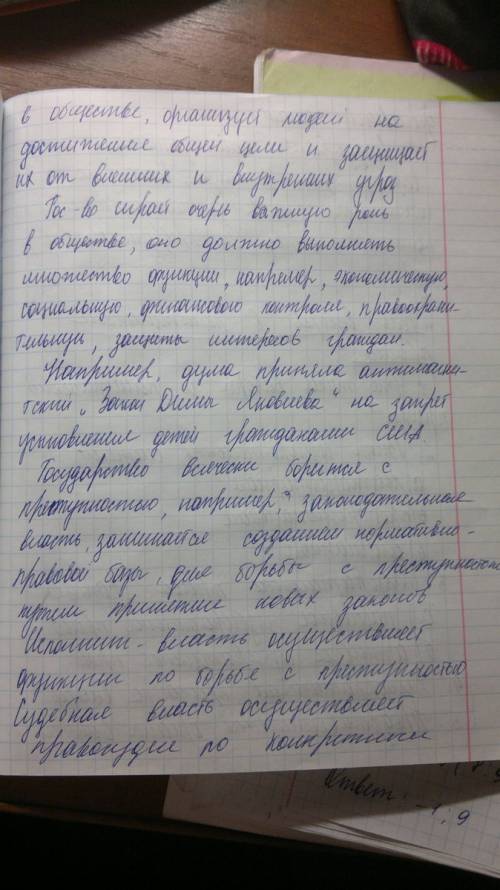 в обществе, организует людей на
достижение общей цели и защищает
их от внешних и внутренних угроз
Гос-во играет очень важную роль
в обществе, оно должно выполнять
множество функций, например, экономическую,
социальную, финансового контроля, правоохрани-
тельную, защиты интересов граждан.
Например, дума приняла
"Закон Димы Яковлева" на запрет
усыновления детей гражданами США.
Государство всячески борется с
преступностью, например, законодательная
власть, занимается созданием нормативно-
правовой базы, для борьбы с преступностью
путем принятие новых законов
Исполнит-власть осуществляет
функции по борьбе с преступностью
Судебная власть осуществляет
правосудие по конкретным
Ответ: -1, 9